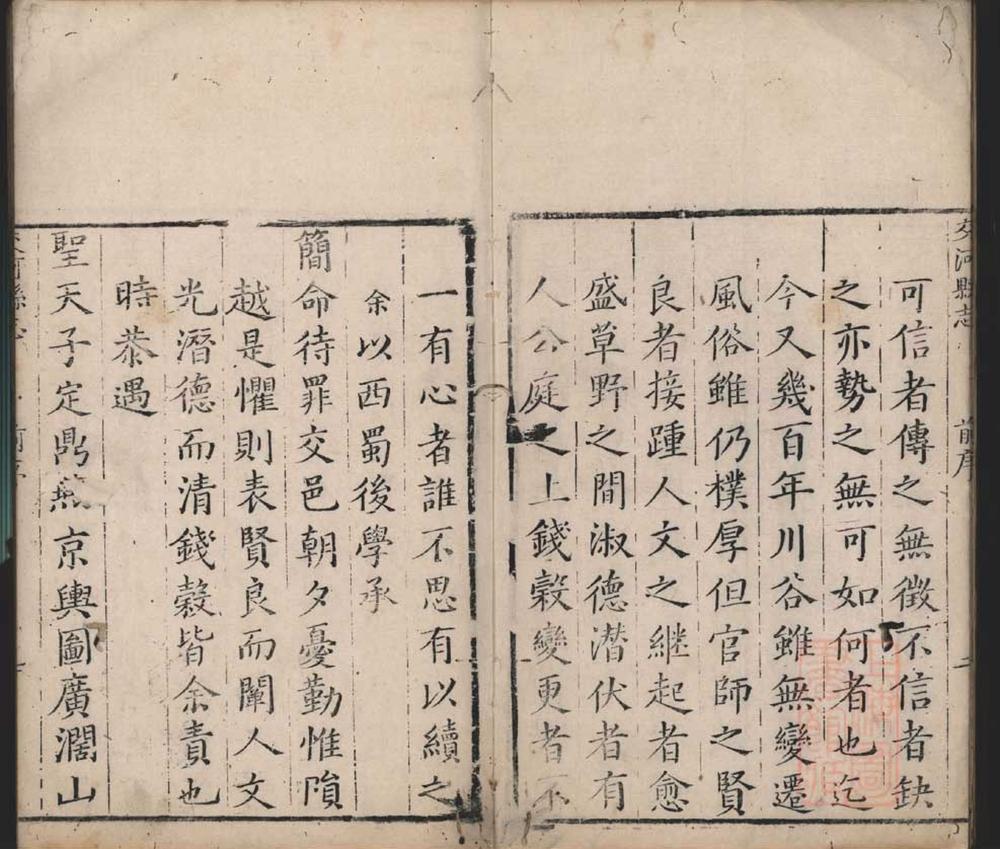 交河縣志 前序 二
可信者傳之無徵不信者缺
之亦勢之無可如何者也迄
今又幾百年川谷雖無變遷
風俗雖仍樸厚但官師之賢
良者接踵人文之継起者愈
盛草野之間淑德潜伏者有
人公庭之上錢穀變更者不
一有心者誰不思有以續之
余以西蜀後學承
簡命待罪交邑朝夕憂勤惟隕
越是懼則表賢良而闡人文
光潛德而清錢穀皆余責也
時恭遇
聖天子定鼎燕京輿圖廣濶山